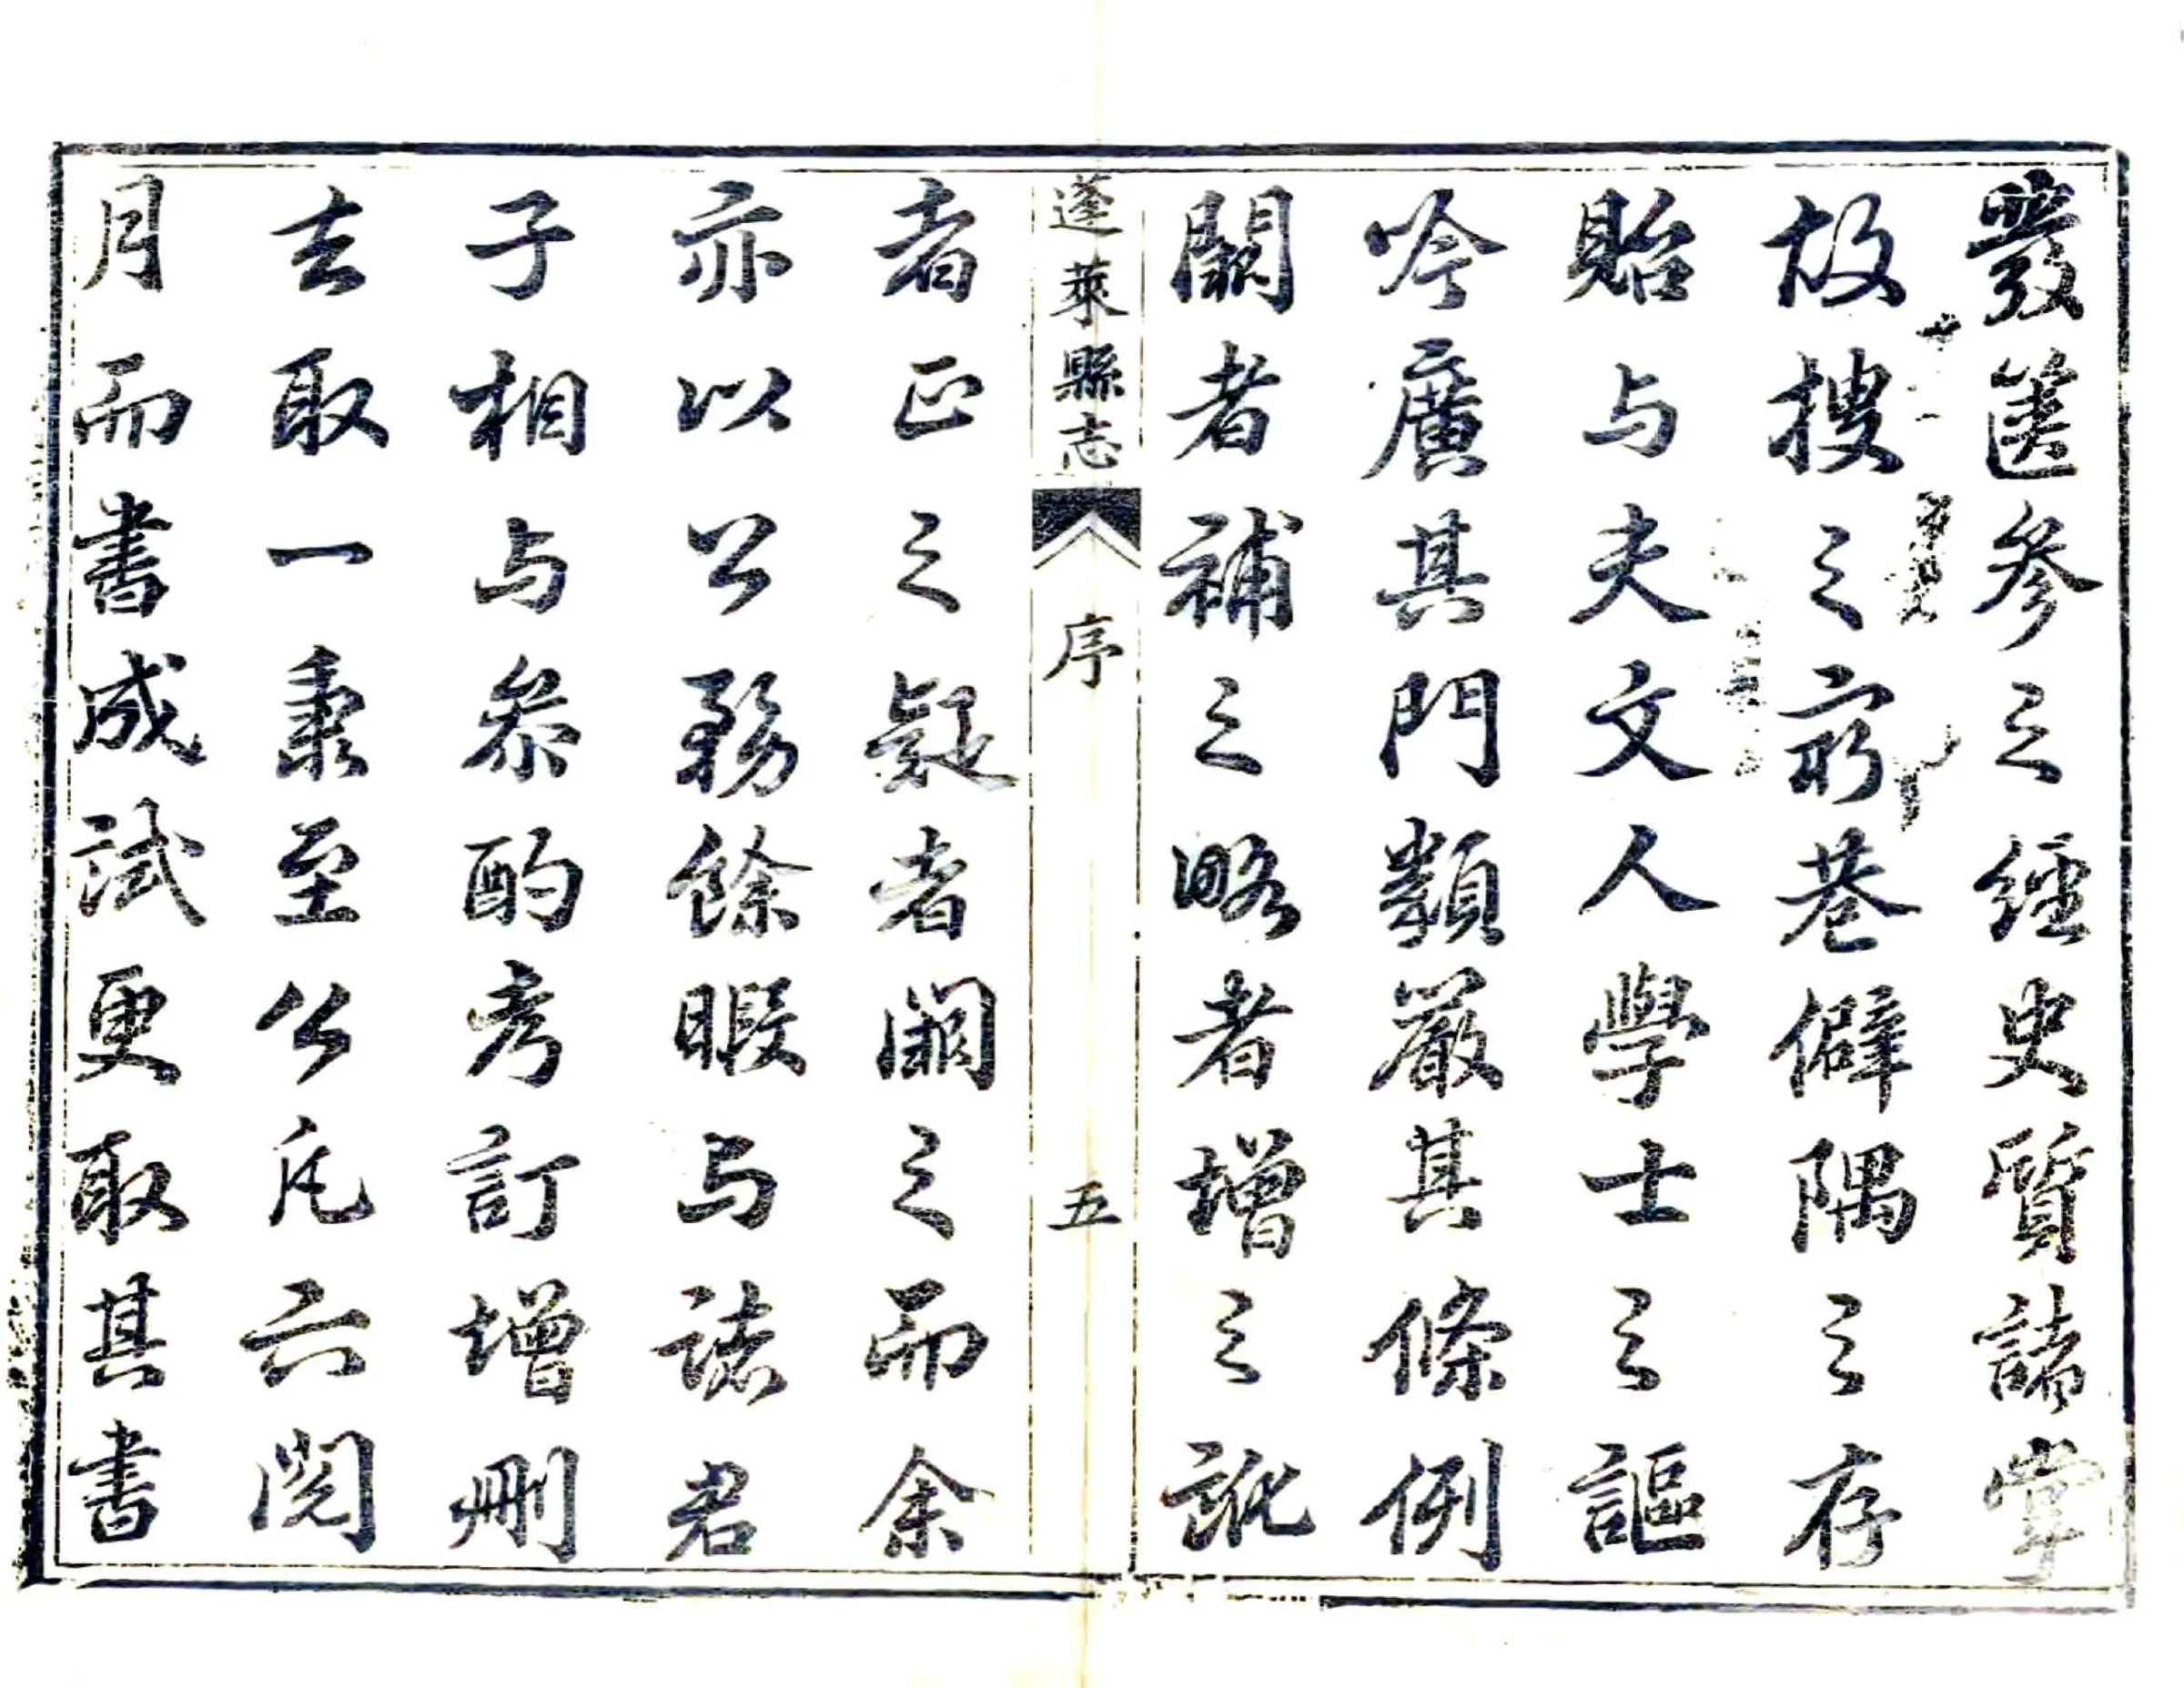 發篋參之經史質諸掌
故搜之窮巷僻隅之存
貽与夫文人學士之謳
吟廣其門類嚴其條例
闕者補之略者增之訛
蓬萊縣志 序 五
者正之疑者闕之而余
亦以公務餘暇与諸君
子相与叅酌考訂增刪
去取一稟至公凡六閱
月而書成試更取其書